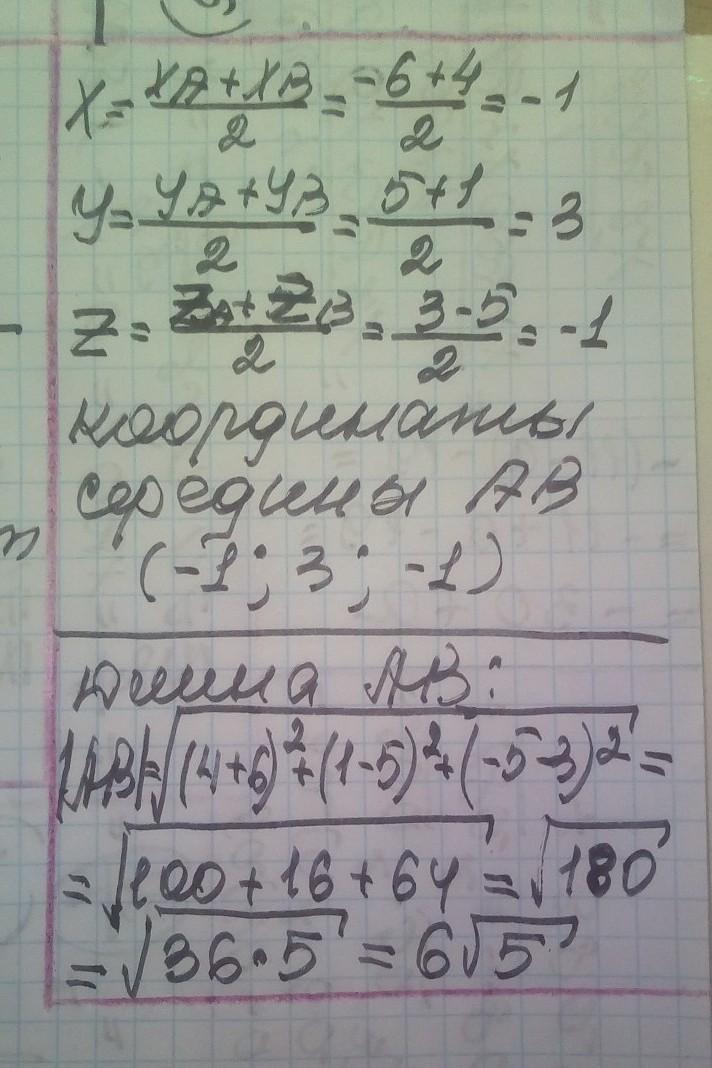 X = (XA + XB)/2 = (-6+4)/2 = -1
У = (УA + УB)/2 = (5+1)/2 = 3
Z = (ZA + ZB)/2 = (3-5)/2 = -1
координаты
середины AB
(-1; 3; -1)
Длина AB:
|AB| = √((4+6)² + (1-5)² + (-5-3)²) =
= √(100 + 16 + 64) = √180
= √(36·5) = 6√5